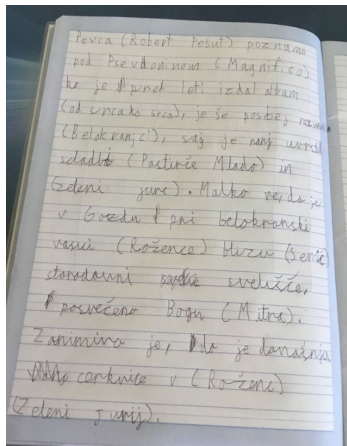 Pevca (Robert Pešut) poznamo
pod Psevdonimom (Magnifico)
ko je pred leti izdal album
(od srca do srca), je še posbej
(Belokranjci), saj je nanj uvrstil
skladbi (Pastirče Mlado) in
(zeleni jure). Malko ve, da je
v Gozdu pri belokranski
vasici (Rožence) blizu (Semič)
starodavni svetišče,
posvečeno Bogu (Mitra).
Zanimivo je, da je današnja
cerknice v (Roženc)
(Zeleni jurij).